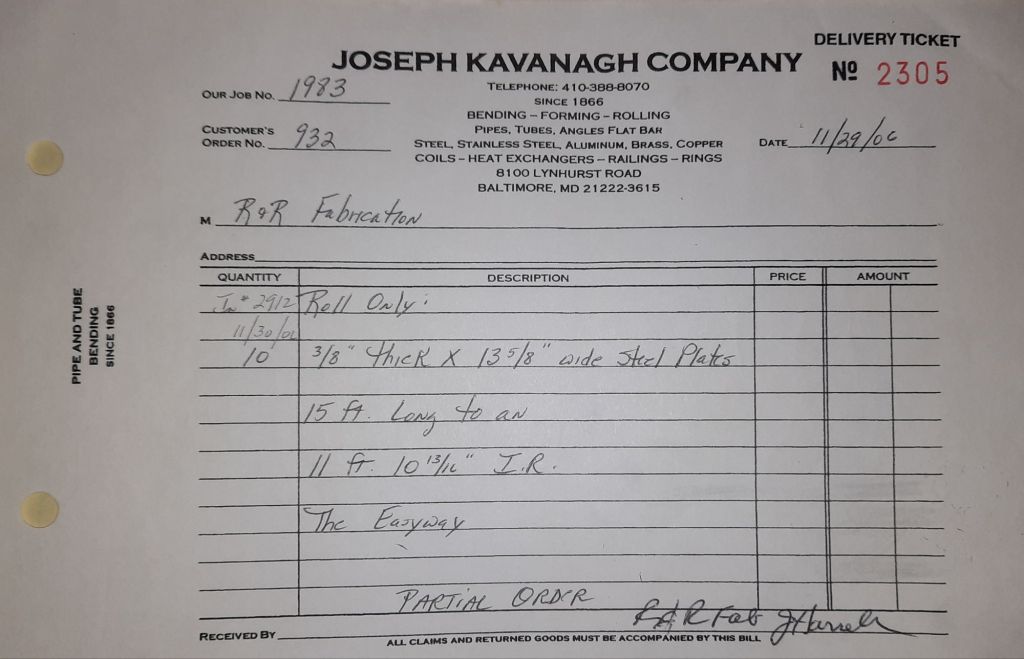 DELIVERY TICKET
JOSEPH KAVANAGH COMPANY
Nº 2305
OUR JOB NO. 1983
TELEPHONE: 410-388-8070
SINCE 1866
BENDING – FORMING – ROLLING
PIPES, TUBES, ANGLES FLAT BAR
CUSTOMER'S
ORDER NO. 932
STEEL, STAINLESS STEEL, ALUMINUM, BRASS, COPPER
DATE 11/29/06
COILS – HEAT EXCHANGERS – RAILINGS – RINGS
8100 LYNHURST ROAD
BALTIMORE, MD 21222-3615
M R&R Fabrication
ADDRESS
QUANTITY DESCRIPTION PRICE AMOUNT
In # 2912 Roll Only:
11/30/06
10 3/8" thick X 13 5/8" wide Steel Plates
15 ft. Long to an
11 ft. 10 13/16" I.R.
The Easyway
PARTIAL ORDER
RECEIVED BY R&R Fab
ALL CLAIMS AND RETURNED GOODS MUST BE ACCOMPANIED BY THIS BILL
PIPE AND TUBE
BENDING
SINCE 1866